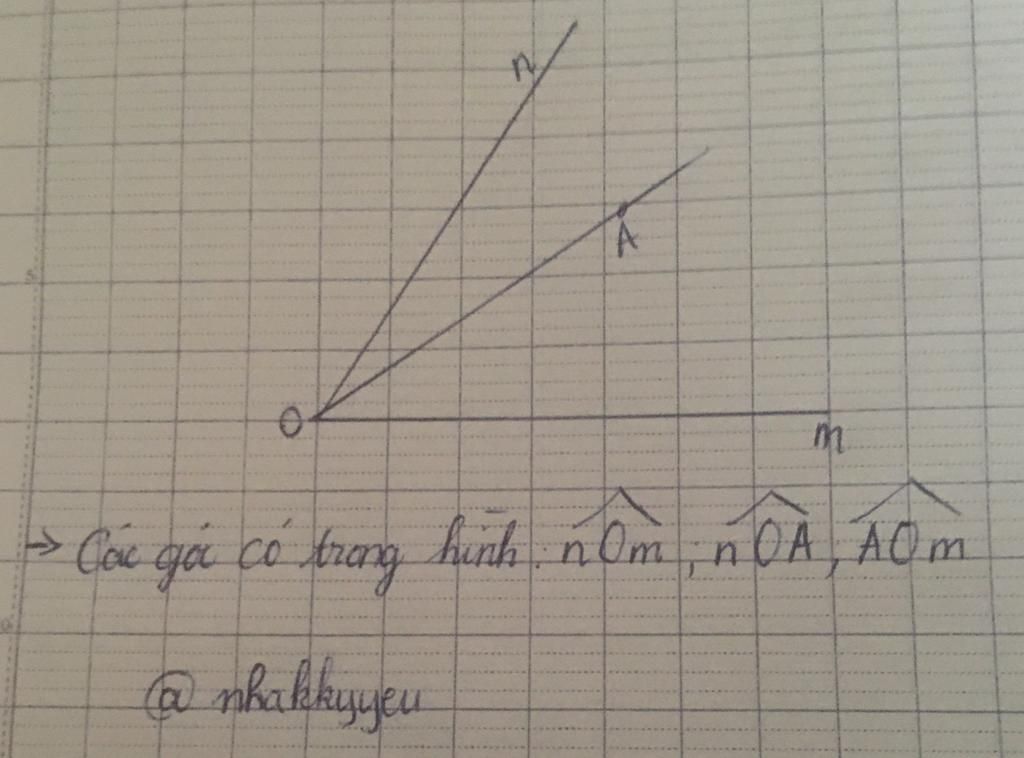 n
A
O
m
→ Các gói có trong hình: nOm; nOA, AOm
@ nhakkyyeu